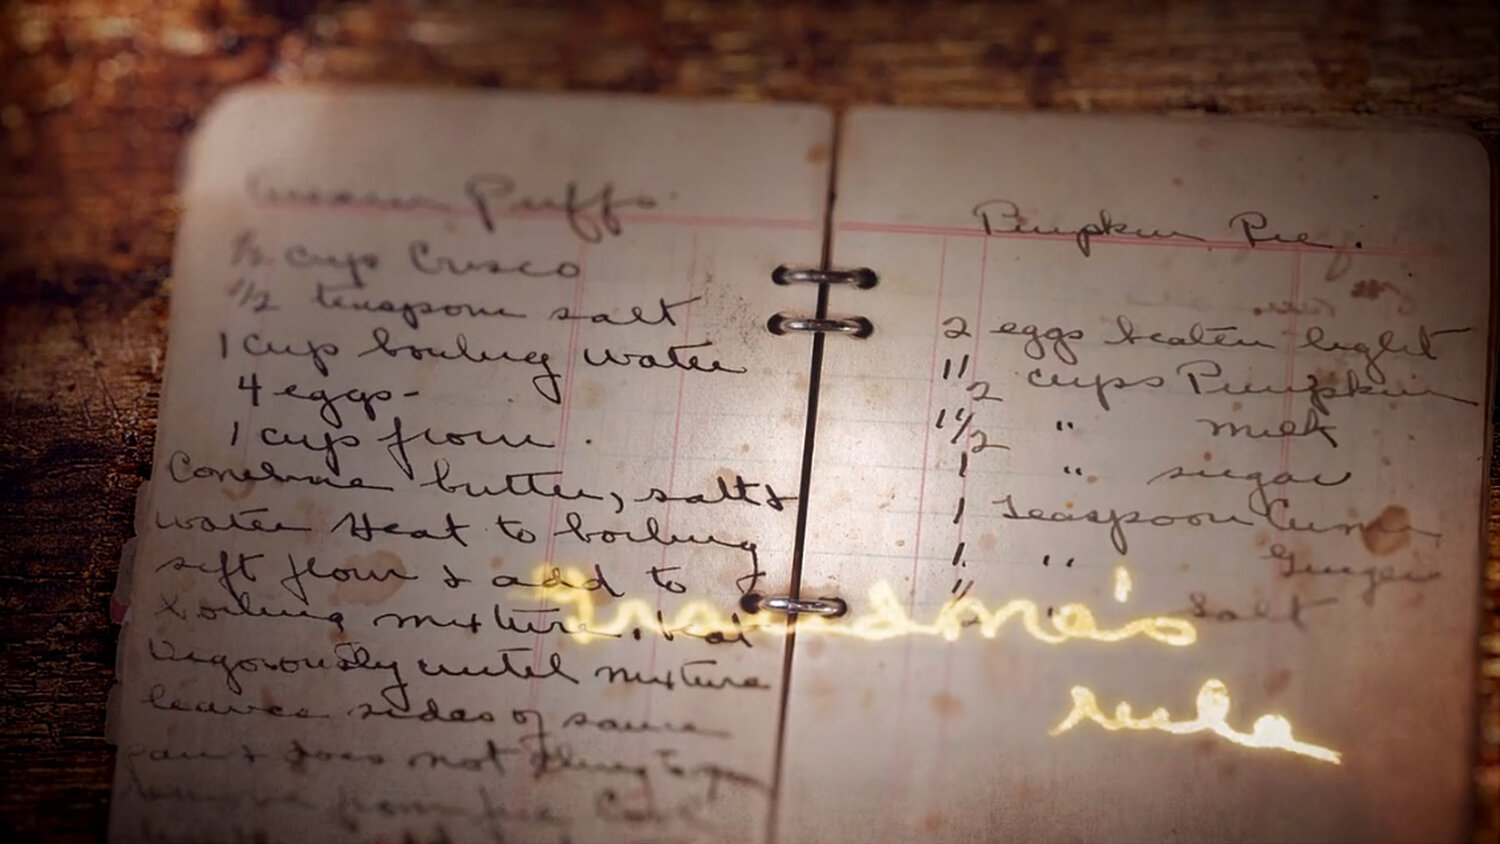 Cream Puffs.
1/2 cup Crisco
1/2 teaspoon salt
1 cup boiling water
4 eggs-
1 cup flour.
Combine butter, salt &
water Heat to boiling
sift flour & add to
boiling mixture, beat
vigorously until mixture
leaves sides of sauce
pan & does not cling to
remove from fire Cool
Pumpkin Pie.
2 eggs beaten light
1 1/2 cups Pumpkin
1 1/2 " milk
1 " sugar
1 Teaspoon
1 " Ginger
" Salt
Grandma's
rule